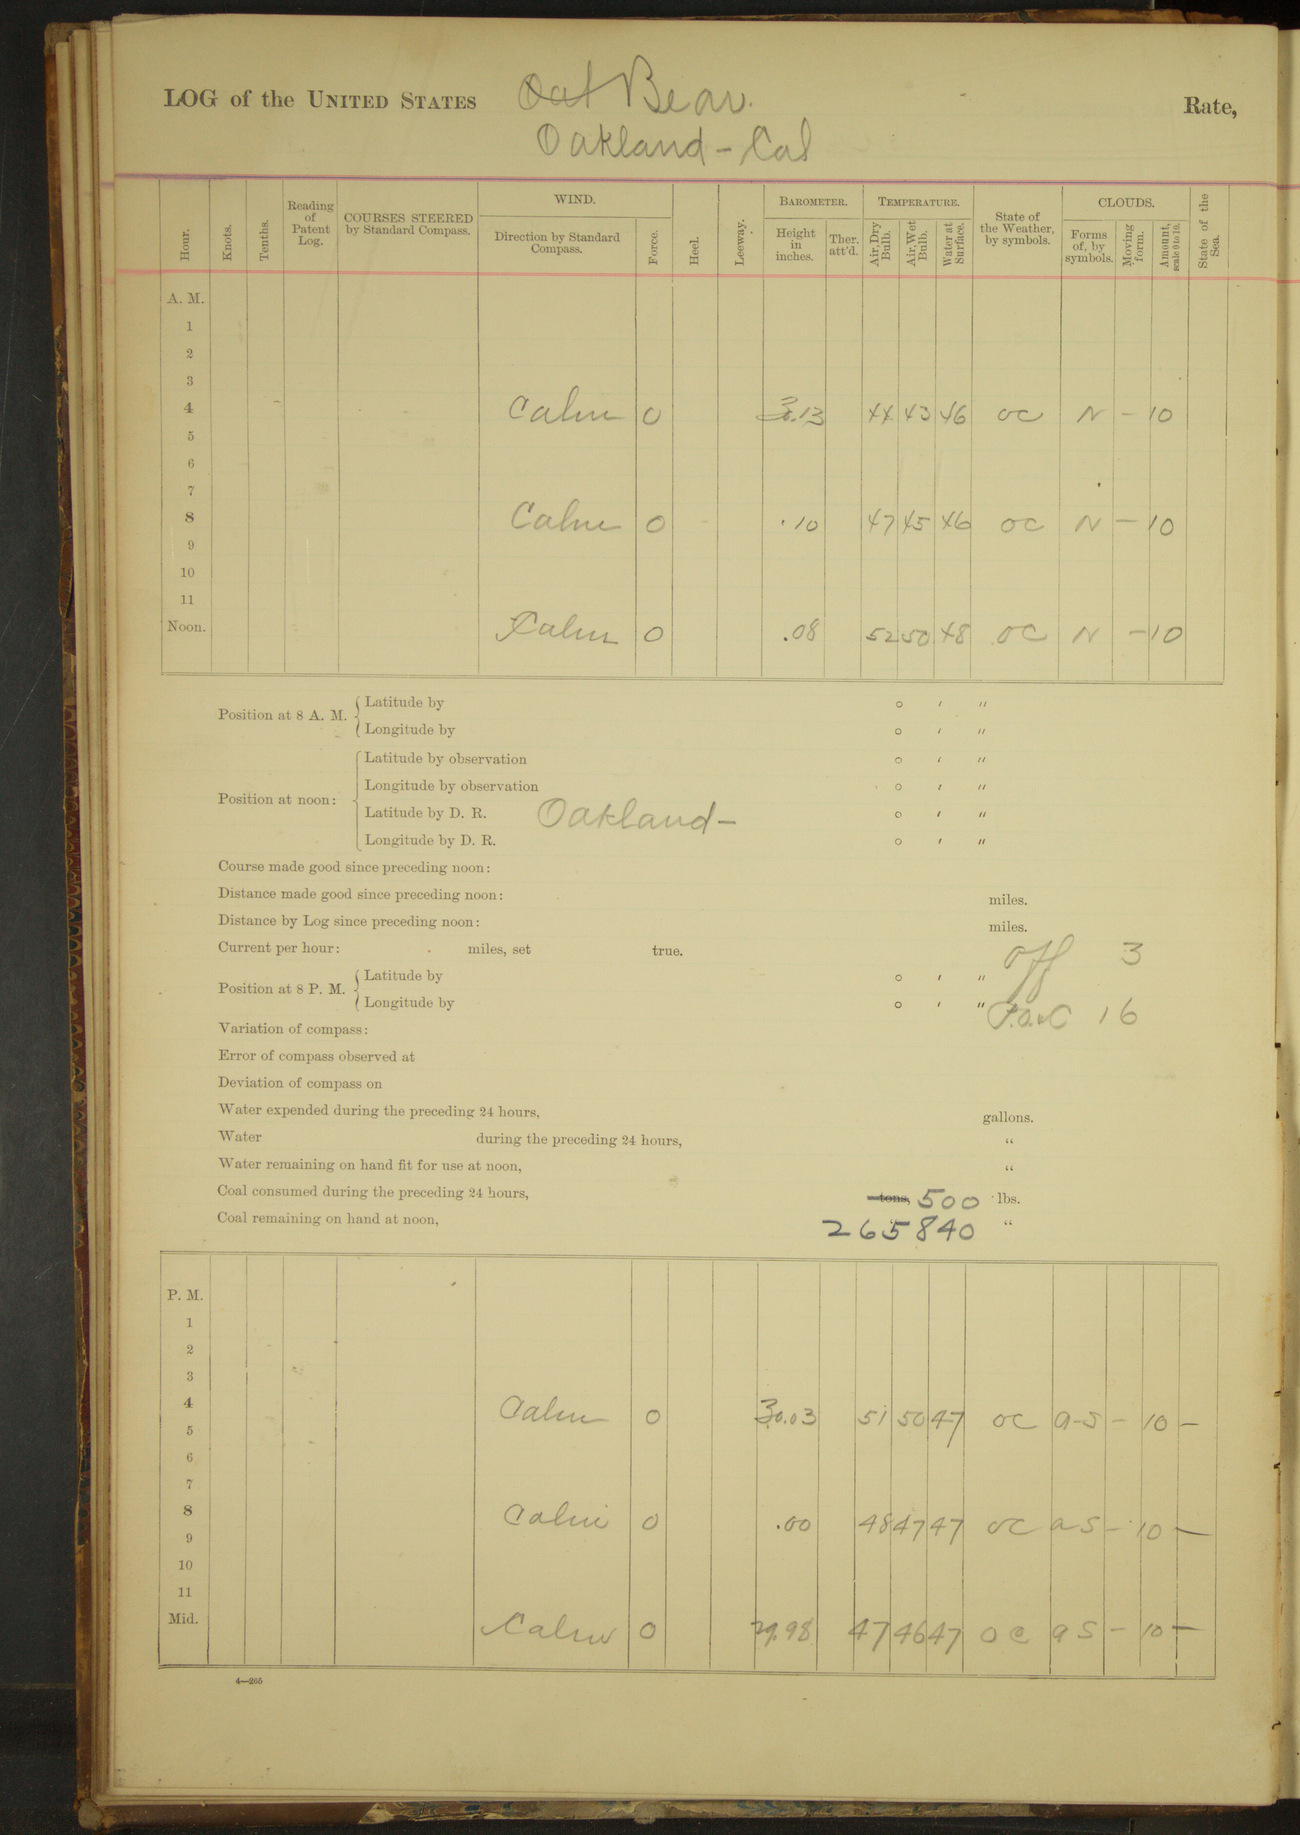 LOG of the UNITED STATES Bear. Rate,
Oakland - Cal
Hour. Knots. Tenths. Reading of Patent Log. COURSES STEERED by Standard Compass. WIND. Direction by Standard Compass. Force. Heel. Leeway. BAROMETER. Height in inches. Ther. att'd. TEMPERATURE. Air, Dry Bulb. Air, Wet Bulb. Water at Surface. State of the Weather, by symbols. CLOUDS. Forms of, by symbols. Moving form. Amount, scale 0 to 10. State of the Sea.
A. M.
1
2
3
4 Calm 0 30.13 44 43 46 OC N - 10
5
6
7
8 Calm 0 .10 47 45 46 OC N - 10
9
10
11
Noon. Calm 0 .08 52 50 48 OC N - 10
Position at 8 A. M. Latitude by ° ′ ″
Longitude by ° ′ ″
Position at noon: Latitude by observation ° ′ ″
Longitude by observation ° ′ ″
Latitude by D. R. Oakland- ° ′ ″
Longitude by D. R. ° ′ ″
Course made good since preceding noon:
Distance made good since preceding noon: miles.
Distance by Log since preceding noon: miles.
Current per hour: miles, set true. Off 3
Position at 8 P. M. Latitude by ° ′ ″
Longitude by ° ′ ″ 16
Variation of compass:
Error of compass observed at
Deviation of compass on
Water expended during the preceding 24 hours, gallons.
Water during the preceding 24 hours, "
Water remaining on hand fit for use at noon, "
Coal consumed during the preceding 24 hours, tons, 500 lbs.
Coal remaining on hand at noon, 265840 "
P. M.
1
2
3
4 Calm 0 30.03 51 50 47 OC a-s - 10 -
5
6
7
8 Calm 0 .00 48 47 47 OC a s - 10 -
9
10
11
Mid. Calm 0 29.98 47 46 47 OC a s - 10 -
4—265